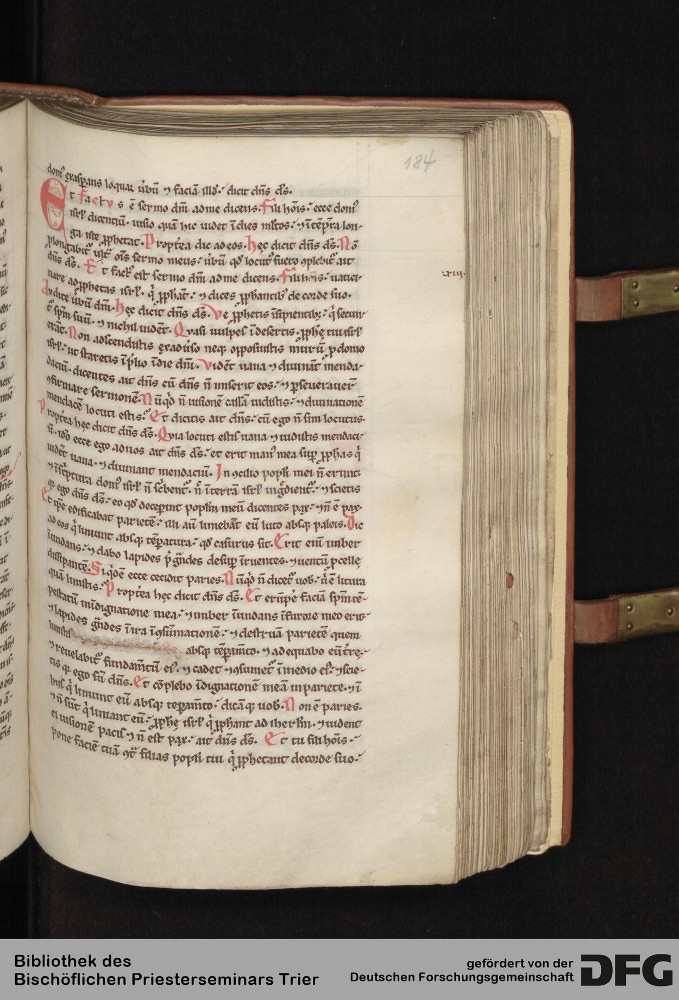 184
dom᷒ exasꝑans loquar ūbū ⁊ faciā illď. dicit dn̄s ds̄.
Et factus ē sermo dn̄i ad me dicens. Fili hōis. ecce dom᷒
isrl̄ dicentiū. uisio quā hic uidet ī dies ml̄tos. ⁊ ī tēpora lon-
ga iste ꝓphetat. Propt̄ea dic ad eos. Hęc dicit dn̄s ds̄. Nō
ꝓlongabit᷑ ult᷑ om̄s sermo meus. ūbū qď locut᷒ fuero ꝯplebit᷑ ait
dn̄s ds̄. Et fact᷒ est sermo dn̄i ad me dicens. Fili hōis. uatici-
nare ad ꝓphetas isrl̄. q̇ ꝓphāt. ⁊ dices ꝓphantib᷒ de corde suo.
Audite ūbū dn̄i. Hęc dicit dn̄s ds̄. Ve ꝓphetis īsipientib᷒. q̇ secun-
t᷑ sp̄m suū. ⁊ nichil uidēt. Quasi uulpes ī desertis. ꝓphę tui isrl̄
erāt. Non ascendistis ex aduerso neq; opposuistis murū ꝓ domo
isrl̄. ut staretis ī p̄lio ī die dn̄i. Vidēt uana ⁊ diuināt menda-
ciū. dicentes ait dn̄s cū dn̄s n̄ miserit eos. ⁊ ꝑseuerauer̄t
ꝯfirmare sermonē. Nūqď n̄ uisionē cassā uidistis. ⁊ diuinationē
mendacē locuti estis. Et dicitis ait dn̄s. cū ego n̄ sim locutus.
Propt̄ea hęc dicit dn̄s ds̄. Quia locuti estis uana ⁊ uidistis mendaci-
ū. iďo ecce ego ad uos ait dn̄s ds̄. et erit man᷒ mea suꝑ ꝓphas q̇
uidēt uana. ⁊ diuinant mendaciū. In ꝯcilio popl̄i mei n̄ erunt.
⁊ ī sc̄ptura dom᷒ isrl̄ n̄ sc̄bent᷑. n̄ ī terrā isrl̄ īgdient᷑. ⁊ scietis
q; ego dn̄s ds̄. eo qď deceperint popl̄m meū dicentes pax. ⁊ n̄ ē pax.
Et ip̄e edificabat parietē. illi aū liniebāt eū luto absq; paleis. Dic
ad eos q̇ liniunt absq; tēperatura. qď casurus sit. Erit enī imber
īundans. ⁊ dabo lapides p̄gndes desuꝑ īruentes. ⁊ uentū ꝓcellę
dissipantē. Siqďē ecce cecidit paries. Nūqď n̄ dicet᷑ uob. u᷑ ē litura
quā linistis. Propt̄ea hęc dicit dn̄s ds̄. Et erūpe faciā sp̄m tē-
pestatū ī indignatione mea. ⁊ imber īundans ī furore meo erit.
⁊ lapides gndes ī ira ī ꝯsūmationē. ⁊ destruā parietē quem
linistis absq; tēꝑam̄to. ⁊ adequabo eū t̄re.
⁊ reuelabit᷑ fundam̄tū ei᷒. ⁊ cadet ⁊ ꝯsumet᷑ ī medio ei᷒. ⁊ scie-
tis q; ego sū dn̄s. Et cōplebo īdignationē meā in pariete. ⁊ ī
his q̇ liniunt eū absq; tēꝑam̄to. dicāq; uob. Non ē paries.
⁊ n̄ sūt q̇ liniant eū. ꝓphę isrl̄ q̇ ꝓphant ad iherl̄m. ⁊ uident
ei uisionē pacis. ⁊ n̄ est pax. ait dn̄s ds̄. Et tu fili hōis.
pone faciē tuā ꝯt᷑ filias popl̄i tui q̇ ꝓphetant de corde suo.
.xiii.
Bibliothek des
Bischöflichen Priesterseminars Trier
gefördert von der
Deutschen Forschungsgemeinschaft
DFG